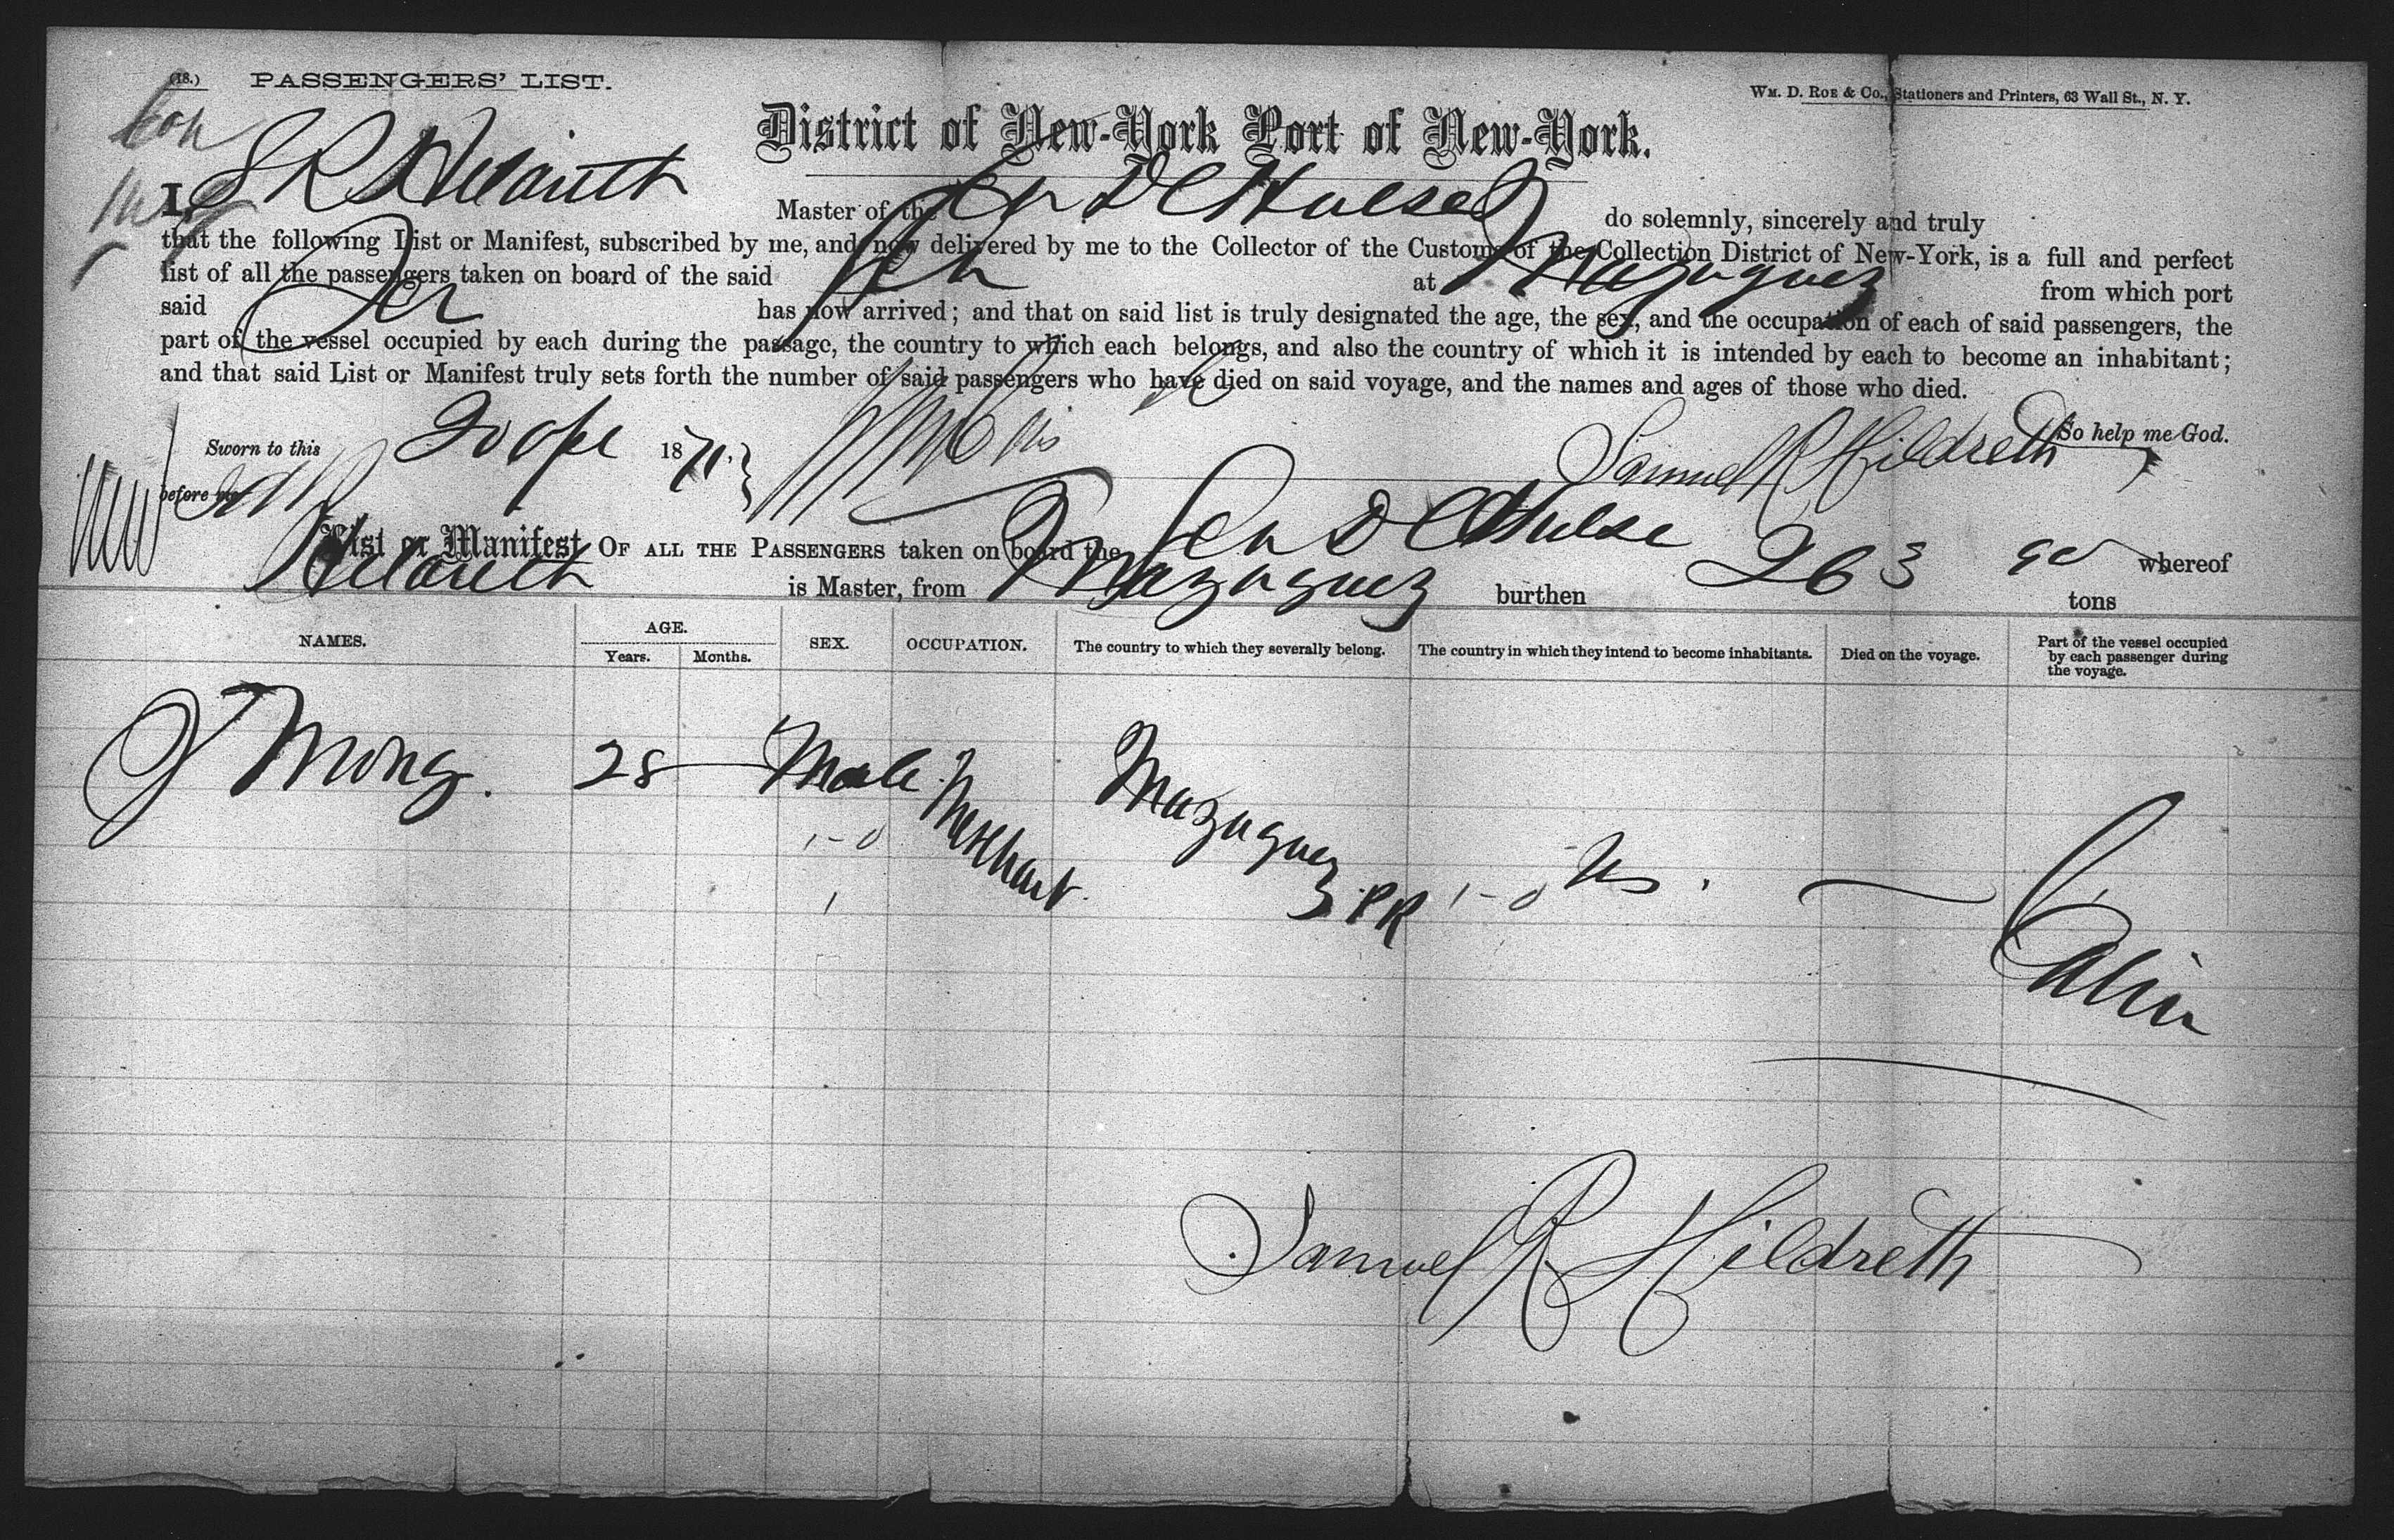 (18.) PASSENGERS' LIST.
WM. D. ROE & CO., Stationers and Printers, 63 Wall St., N. Y.
District of New-York Port of New-York.
I, S R Hildreth Master of the Sch D C Hulse do solemnly, sincerely and truly
that the following List or Manifest, subscribed by me, and now delivered by me to the Collector of the Customs of the Collection District of New-York, is a full and perfect
list of all the passengers taken on board of the said Sch at Mayaguez from which port
said Sch has now arrived; and that on said list is truly designated the age, the sex, and the occupation of each of said passengers, the
part of the vessel occupied by each during the passage, the country to which each belongs, and also the country of which it is intended by each to become an inhabitant;
and that said List or Manifest truly sets forth the number of said passengers who have died on said voyage, and the names and ages of those who died.
So help me God.
Sworn to this 20 1871. Samuel R Hildreth
before me
List or Manifest OF ALL THE PASSENGERS taken on board the Sch D C Hulse whereof
Hildreth is Master, from Mayaguez burthen 263 tons
NAMES. AGE. Years. Months. SEX. OCCUPATION. The country to which they severally belong. The country in which they intend to become inhabitants. Died on the voyage. Part of the vessel occupied by each passenger during the voyage.
J Mong. 28 — Male Merchant Mayaguez PR US. — Cabin
1-0 1-0
1
Samuel R Hildreth